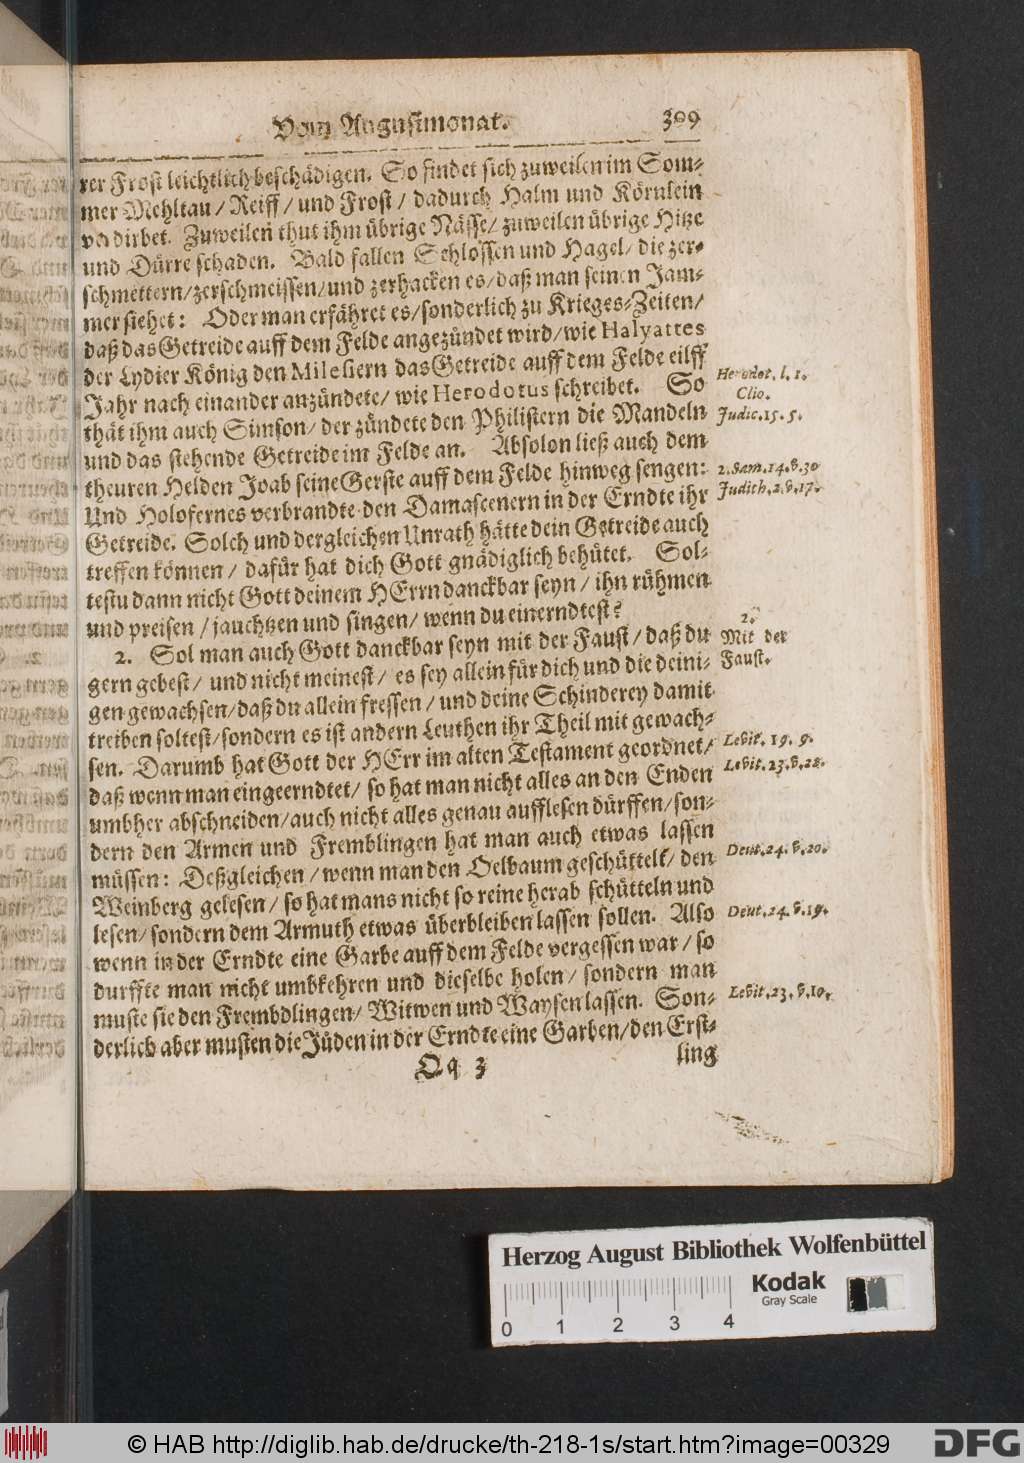 Vom Augustmonat. 309
rer Frost leichtlich beschädigen. So findet sich zuweilen im Som-
mer Mehltau / Reiff / und Frost / dadurch Halm und Körnlein
verdirbet. Zuweilen thut ihm übrige Nässe / zuweilen übrige Hitze
und Dürre schaden. Bald fallen Schlossen und Hagel / die zer-
schmettern / zerschmeissen / und zerhacken es / daß man seinen Jam-
mer siehet: Oder man erfähret es / sonderlich zu Krieges-Zeiten /
daß das Getreide auff dem Felde angezündet wird / wie Halyattes
der Lydier König den Milesiern das Getreide auff dem Felde eilff
Jahr nach einander anzündete / wie Herodotus schreibet. So
Herodot. l. 1.
Clio.
thät ihm auch Simson / der zündete den Philistern die Mandeln
Judic. 15. 5.
und das stehende Getreide im Felde an. Absolon ließ auch dem
theuren Helden Joab seine Gerste auff dem Felde hinweg sengen:
2. Sam. 14. v. 30
Und Holofernes verbrandte den Damascenern in der Erndte ihr
Judith. 2. v. 17.
Getreide. Solch und dergleichen Unrath hätte dein Getreide auch
treffen können / dafür hat dich Gott gnädiglich behütet. Sol-
testu dann nicht Gott deinem HErrn danckbar seyn / ihn rühmen
und preisen / jauchtzen und singen / wenn du einerndtest?
2. Sol man auch Gott danckbar seyn mit der Faust / daß du
2.
Mit der
Faust.
gern gebest / und nicht meinest / es sey allein für dich und die deini-
gen gewachsen / daß du allein fressen / und deine Schinderey damit
treiben soltest / sondern es ist andern Leuthen ihr Theil mit gewach-
sen. Darumb hat Gott der HErr im alten Testament geordnet /
Levit. 19. 9.
daß wenn man eingeerndtet / so hat man nicht alles an den Enden
Levit. 23. v. 22.
umbher abschneiden / auch nicht alles genau aufflesen dürffen / son-
dern den Armen und Fremblingen hat man auch etwas lassen
müssen: Deßgleichen / wenn man den Oelbaum geschüttelt / den
Deut. 24. v. 20.
Weinberg gelesen / so hat mans nicht so reine herab schütteln und
lesen / sondern dem Armuth etwas überbleiben lassen sollen. Also
Deut. 24. v. 19.
wenn in der Erndte eine Garbe auff dem Felde vergessen war / so
durffte man nicht umbkehren und dieselbe holen / sondern man
muste sie den Frembdlingen / Witwen und Waysen lassen. Son-
Levit. 23. v. 10.
derlich aber musten die Jüden in der Erndte eine Garben / den Erst-
Qq 3 ling
Herzog August Bibliothek Wolfenbüttel
Kodak
Gray Scale
0 1 2 3 4
© HAB http://diglib.hab.de/drucke/th-218-1s/start.htm?image=00329
DFG